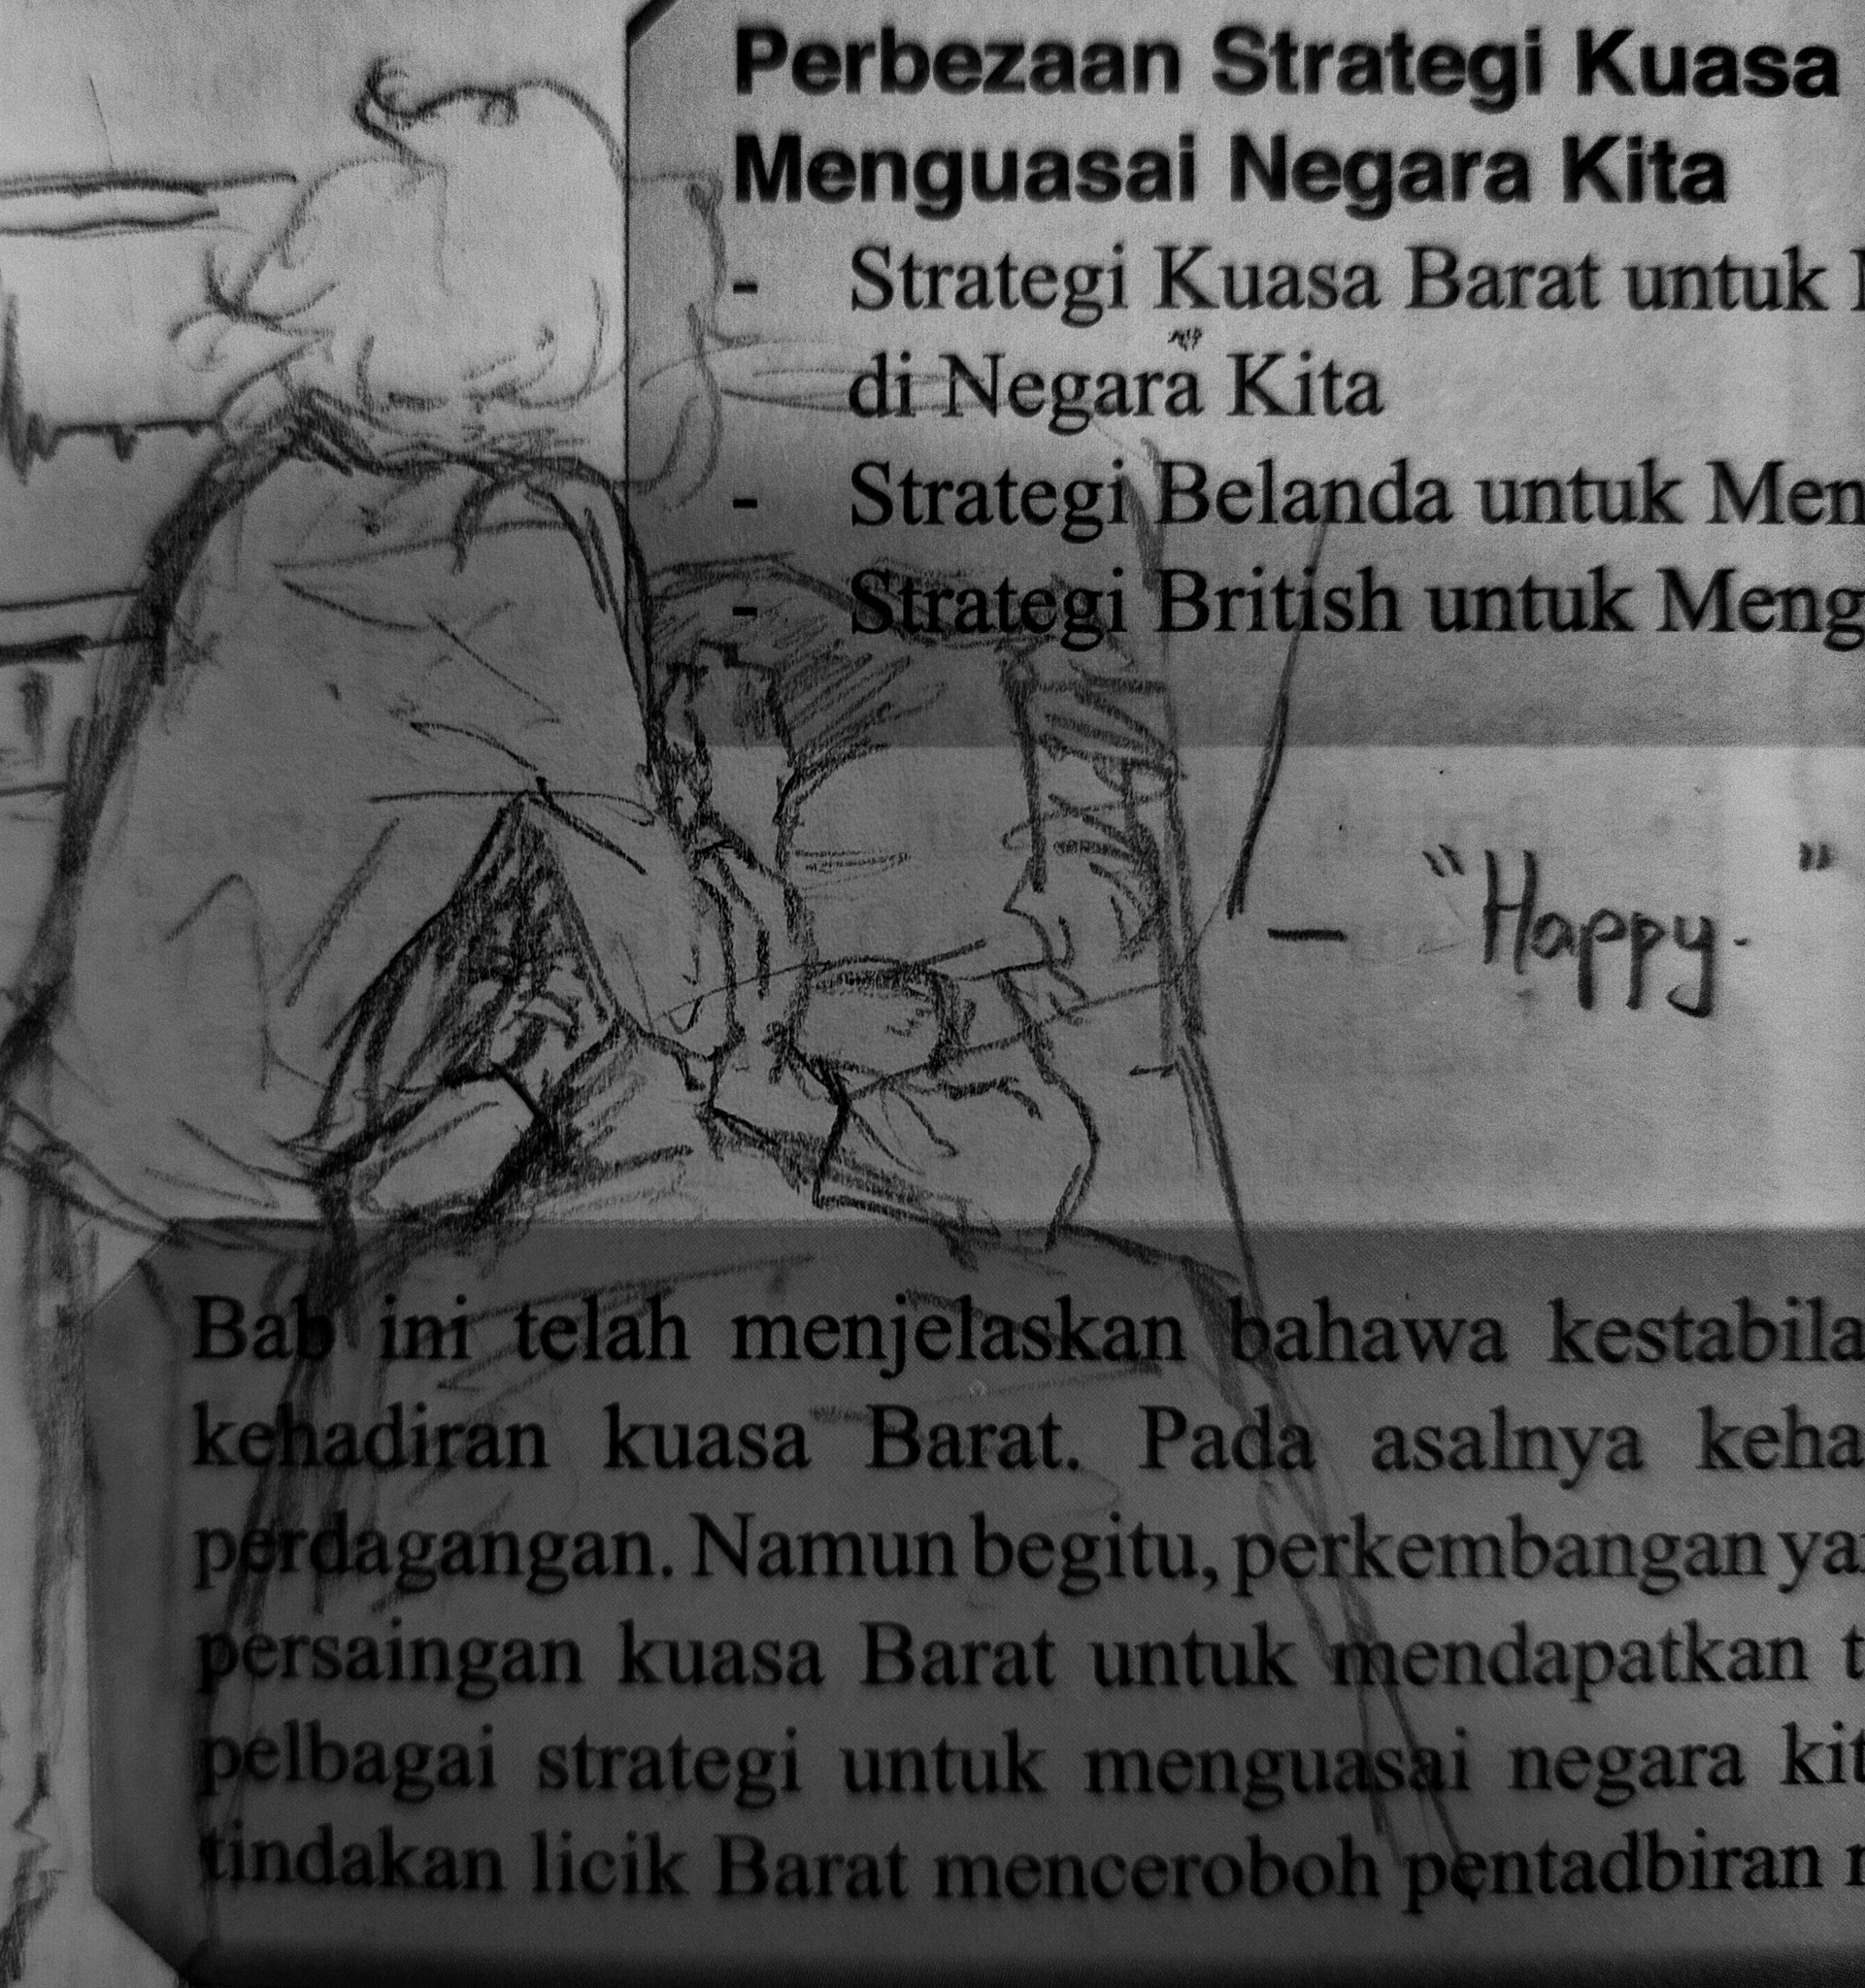 Perbezaan Strategi Kuasa
Menguasai Negara Kita
- Strategi Kuasa Barat untuk
di Negara Kita
- Strategi Belanda untuk Men
- Strategi British untuk Meng
— "Happy. "
Bab ini telah menjelaskan bahawa kestabila
kehadiran kuasa Barat. Pada asalnya keha
perdagangan. Namun begitu, perkembangan ya
persaingan kuasa Barat untuk mendapatkan t
pelbagai strategi untuk menguasai negara kit
tindakan licik Barat menceroboh pentadbiran